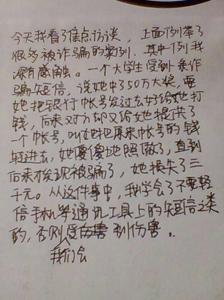 今天我看了焦点访谈，上面列举了
很多被诈骗的案例，其中一例我
深有感触。一个大学生受到来作
骗短信，说她中了50万大奖，要
她把银行帐号发过去好给她打
钱，后来对方却又给她提供了
一个帐号，叫她把原来帐号的钱
转进去，她傻傻地照做了，直到
后来才发现被骗了，她损失了三
千元。从这件事中，我学会了不要轻
信手机等通讯工具上的短信之类
的，否则会受到伤害。
我们会